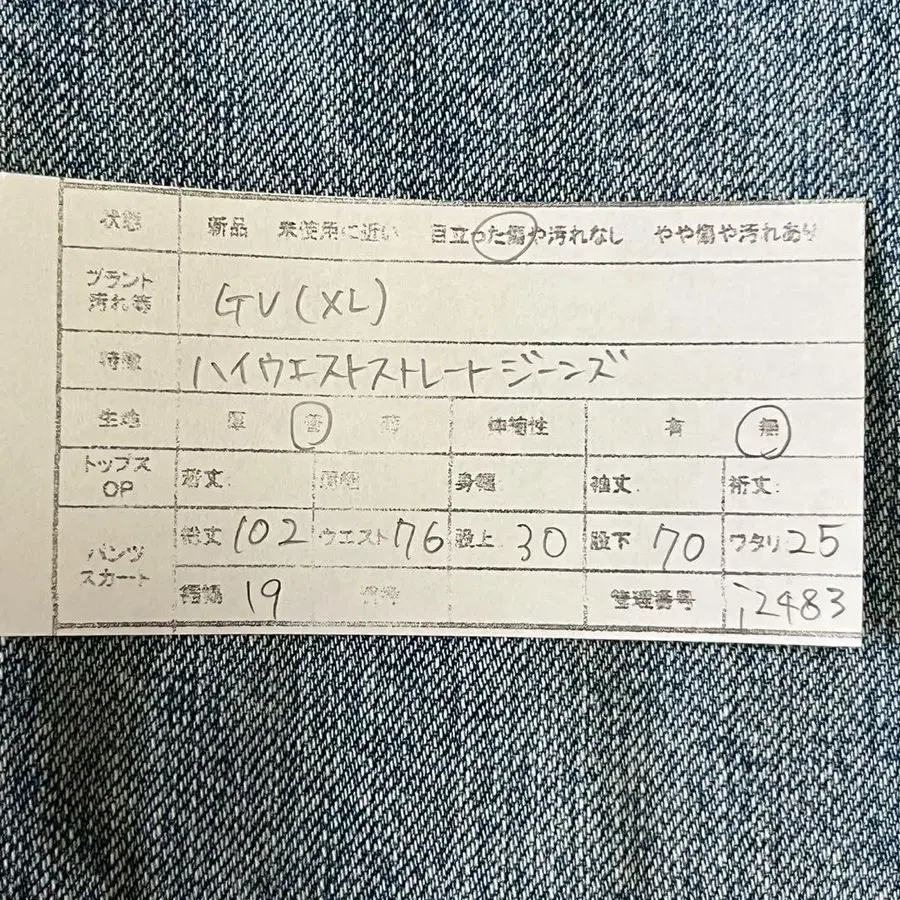 状態 新品 未使用に近い 目立った傷や汚れなし やや傷や汚れあり
ブランド
汚れ等 GU(XL)
特徴 ハイウエストストレートジーンズ
生地 厚 普 薄 伸縮性 有 無
トップス
OP 着丈: 肩幅 身幅 袖丈: 裄丈:
パンツ
スカート 総丈 102 ウエスト 76 股上 30 股下 70 ワタリ 25
裾幅 19 管理番号 i2483